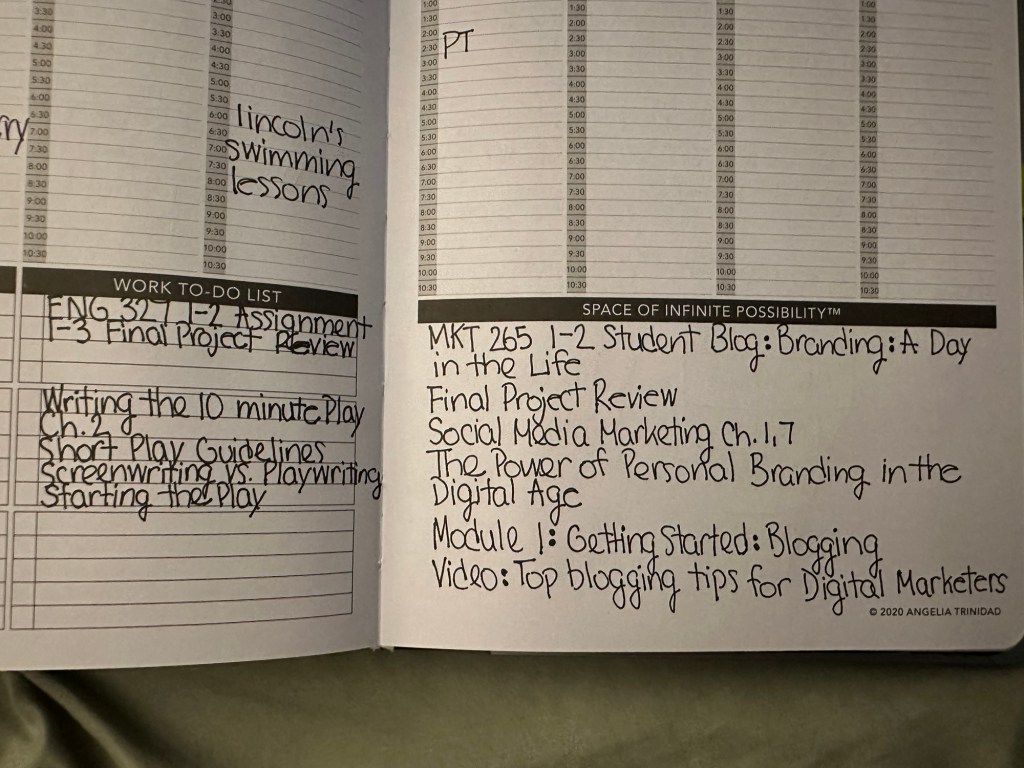 3:30
4:00
4:30
5:00
5:30
6:00
6:30
7:00
7:30
8:00
8:30
9:00
9:30
10:00
10:30
3:00
3:30
4:00
4:30
5:00
5:30
6:00
6:30
7:00
7:30
8:00
8:30
9:00
9:30
10:00
10:30
lincoln's
swimming
lessons
WORK TO-DO LIST
ENG 327 1-2 Assignment
1-3 Final Project Review
Writing the 10 minute Play
Ch. 2
Short Play Guidelines
Screenwriting vs. Playwriting
Starting the Play
1:00
1:30
2:00
2:30
3:00
3:30
4:00
4:30
5:00
5:30
6:00
6:30
7:00
7:30
8:00
8:30
9:00
9:30
10:00
10:30
PT
1:30
2:00
2:30
3:00
3:30
4:00
4:30
5:00
5:30
6:00
6:30
7:00
7:30
8:00
8:30
9:00
9:30
10:00
10:30
1:00
1:30
2:00
2:30
3:00
3:30
4:00
4:30
5:00
5:30
6:00
6:30
7:00
7:30
8:00
8:30
9:00
9:30
10:00
10:30
1:00
1:30
2:00
2:30
3:00
3:30
4:00
4:30
5:00
5:30
6:00
6:30
7:00
7:30
8:00
8:30
9:00
9:30
10:00
10:30
SPACE OF INFINITE POSSIBILITY™
MKT 265 1-2 Student Blog: Branding: A Day
in the Life
Final Project Review
Social Media Marketing Ch. 1, 7
The Power of Personal Branding in the
Digital Age
Module 1: Getting Started: Blogging
Video: Top blogging tips for Digital Marketers
© 2020 ANGELIA TRINIDAD